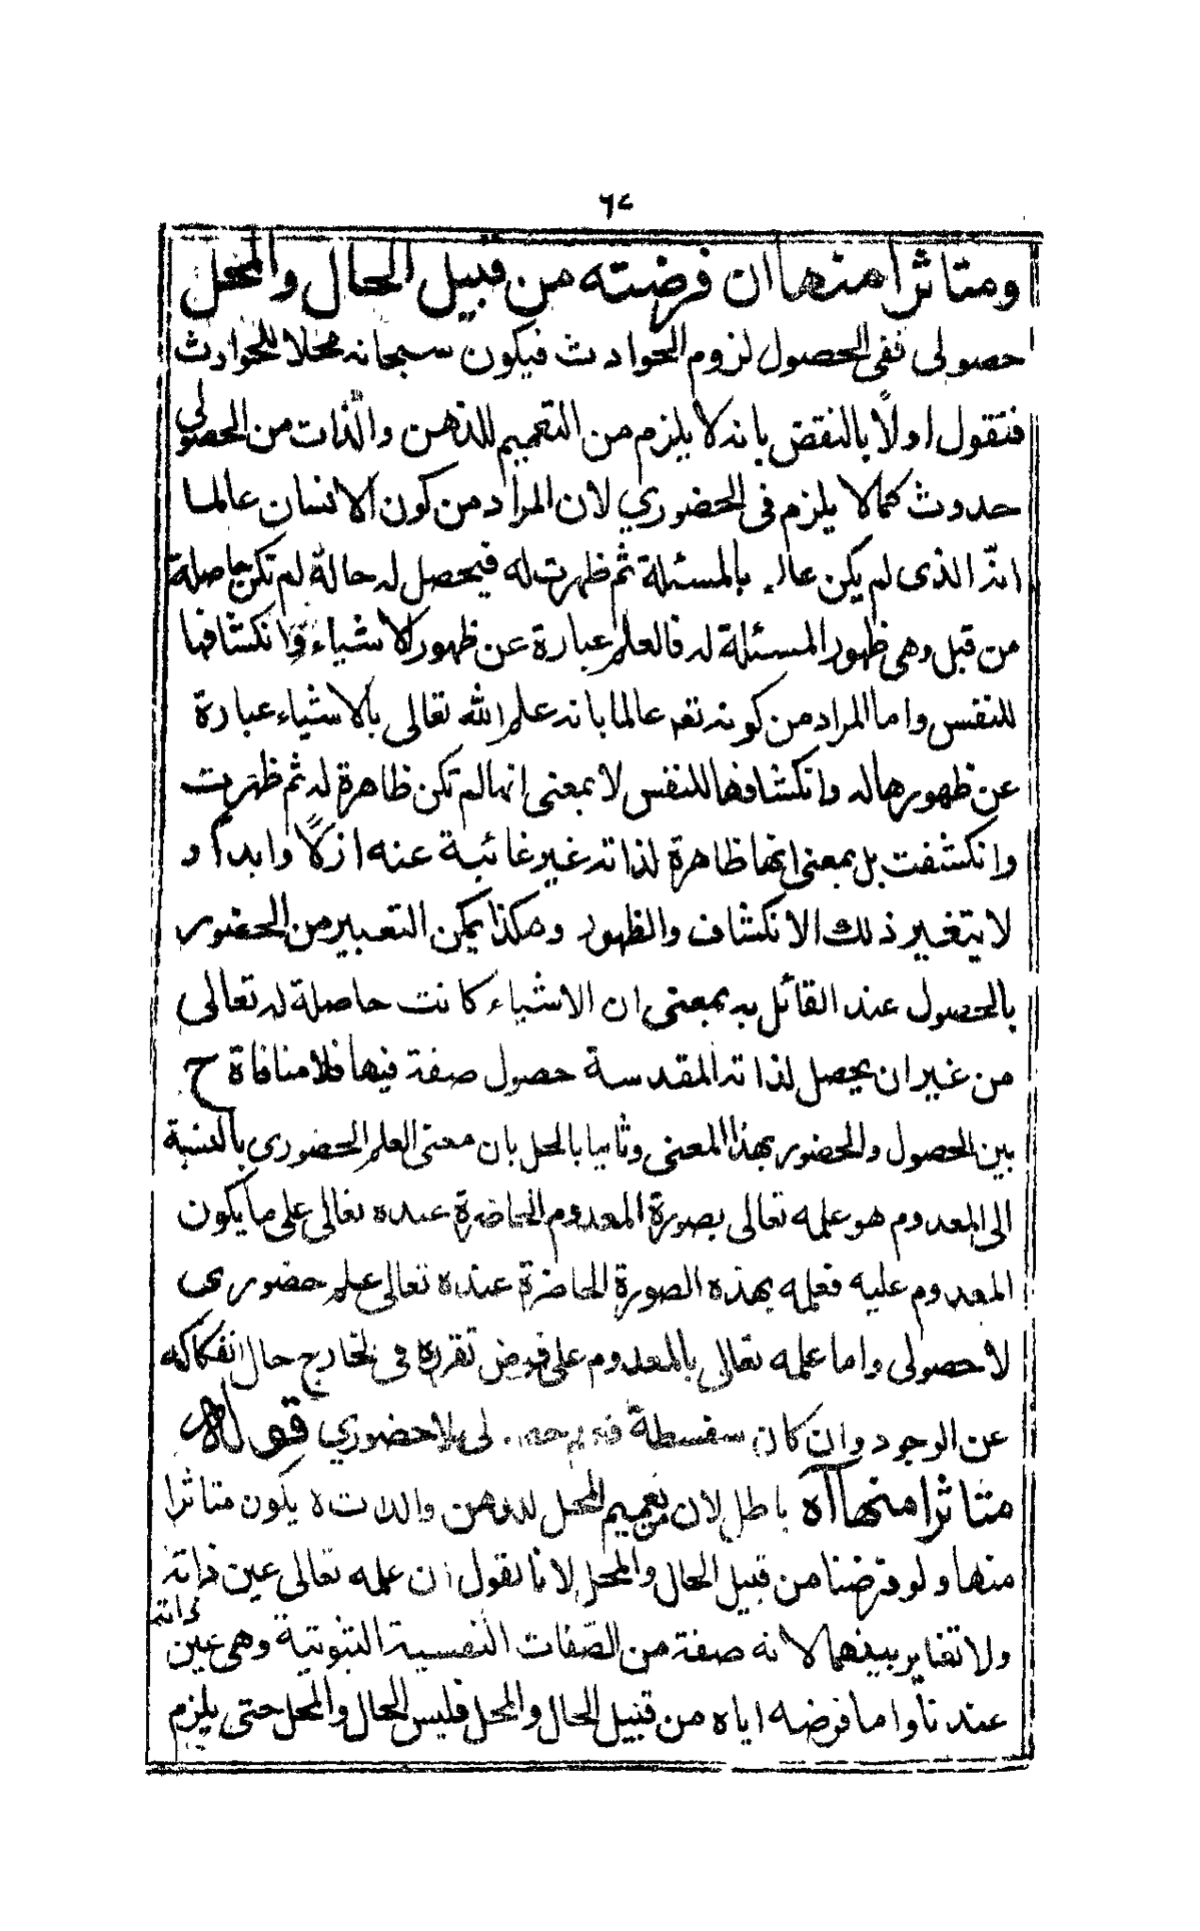 ٦٤
ومتاثرا منها ان فرضته من قبيل الحال والمحل
حصولى ففى الحصول لزوم الحوادث فيكون سبحانه محلا للحوادث
فنقول اولًا بالنقض بانه لا يلزم من التعميم للذهن والذات من الحصولي
حدوث كما لا يلزم فى الحضوري لان المراد من كون الانسان عالما
انه الذى لم يكن عالم بالمسئلة ثم ظهرت له فيحصل له حالة لم تكن حاصلة
من قبل وهى ظهور المسئلة له فالعلم عبارة عن ظهور الاشياء وانكشافها
للنفس واما المراد من كونه تعم عالما بانه علم الله تعالى بالاشياء عبارة
عن ظهورها له وانكشافها للنفس لا بمعنى انها لم تكن ظاهرة له ثم ظهرت
وانكشفت بل بمعنى انها ظاهرة لذاته غير غائبة عنه ازلًا وابدًا و
لا يتغير ذلك الانكشاف والظهور وهكذا يمكن التعبير من الحضور
بالحصول عند القائل به بمعنى ان الاشياء كانت حاصلة له تعالى
من غير ان يحصل لذاته المقدسة حصول صفة فيها فلا منافاة ح
بين الحصول والحضور بهذا المعنى وثانيا بالحل بان معنى العلم الحضورى بالنسبة
الى المعدوم هو علمه تعالى بصورة المعدوم الحاضرة عنده تعالى على ما يكون
المعدوم عليه فعلمه بهذه الصورة الحاضرة عنده تعالى علم حضورى
لا حصولى واما علمه تعالى بالمعدوم على فرض تقرره فى الخارج حال انفكاكه
عن الوجود وان كان سفسطة لى لا حضوري قوله
متاثرا منها آه باطل لان من تعميم المحل للذهن والذات لا يكون متاثرا
منها ولو فرضنا من قبيل الحال والمحل لانا نقول ان علمه تعالى عين ذاته
ولا تغاير بينهما لانه صفة من الصفات النفسية الثبوتية وهى عين ذاته
عندنا واما فرضه اياه من قبيل الحال والمحل فليس الحال والمحل حتى يلزم